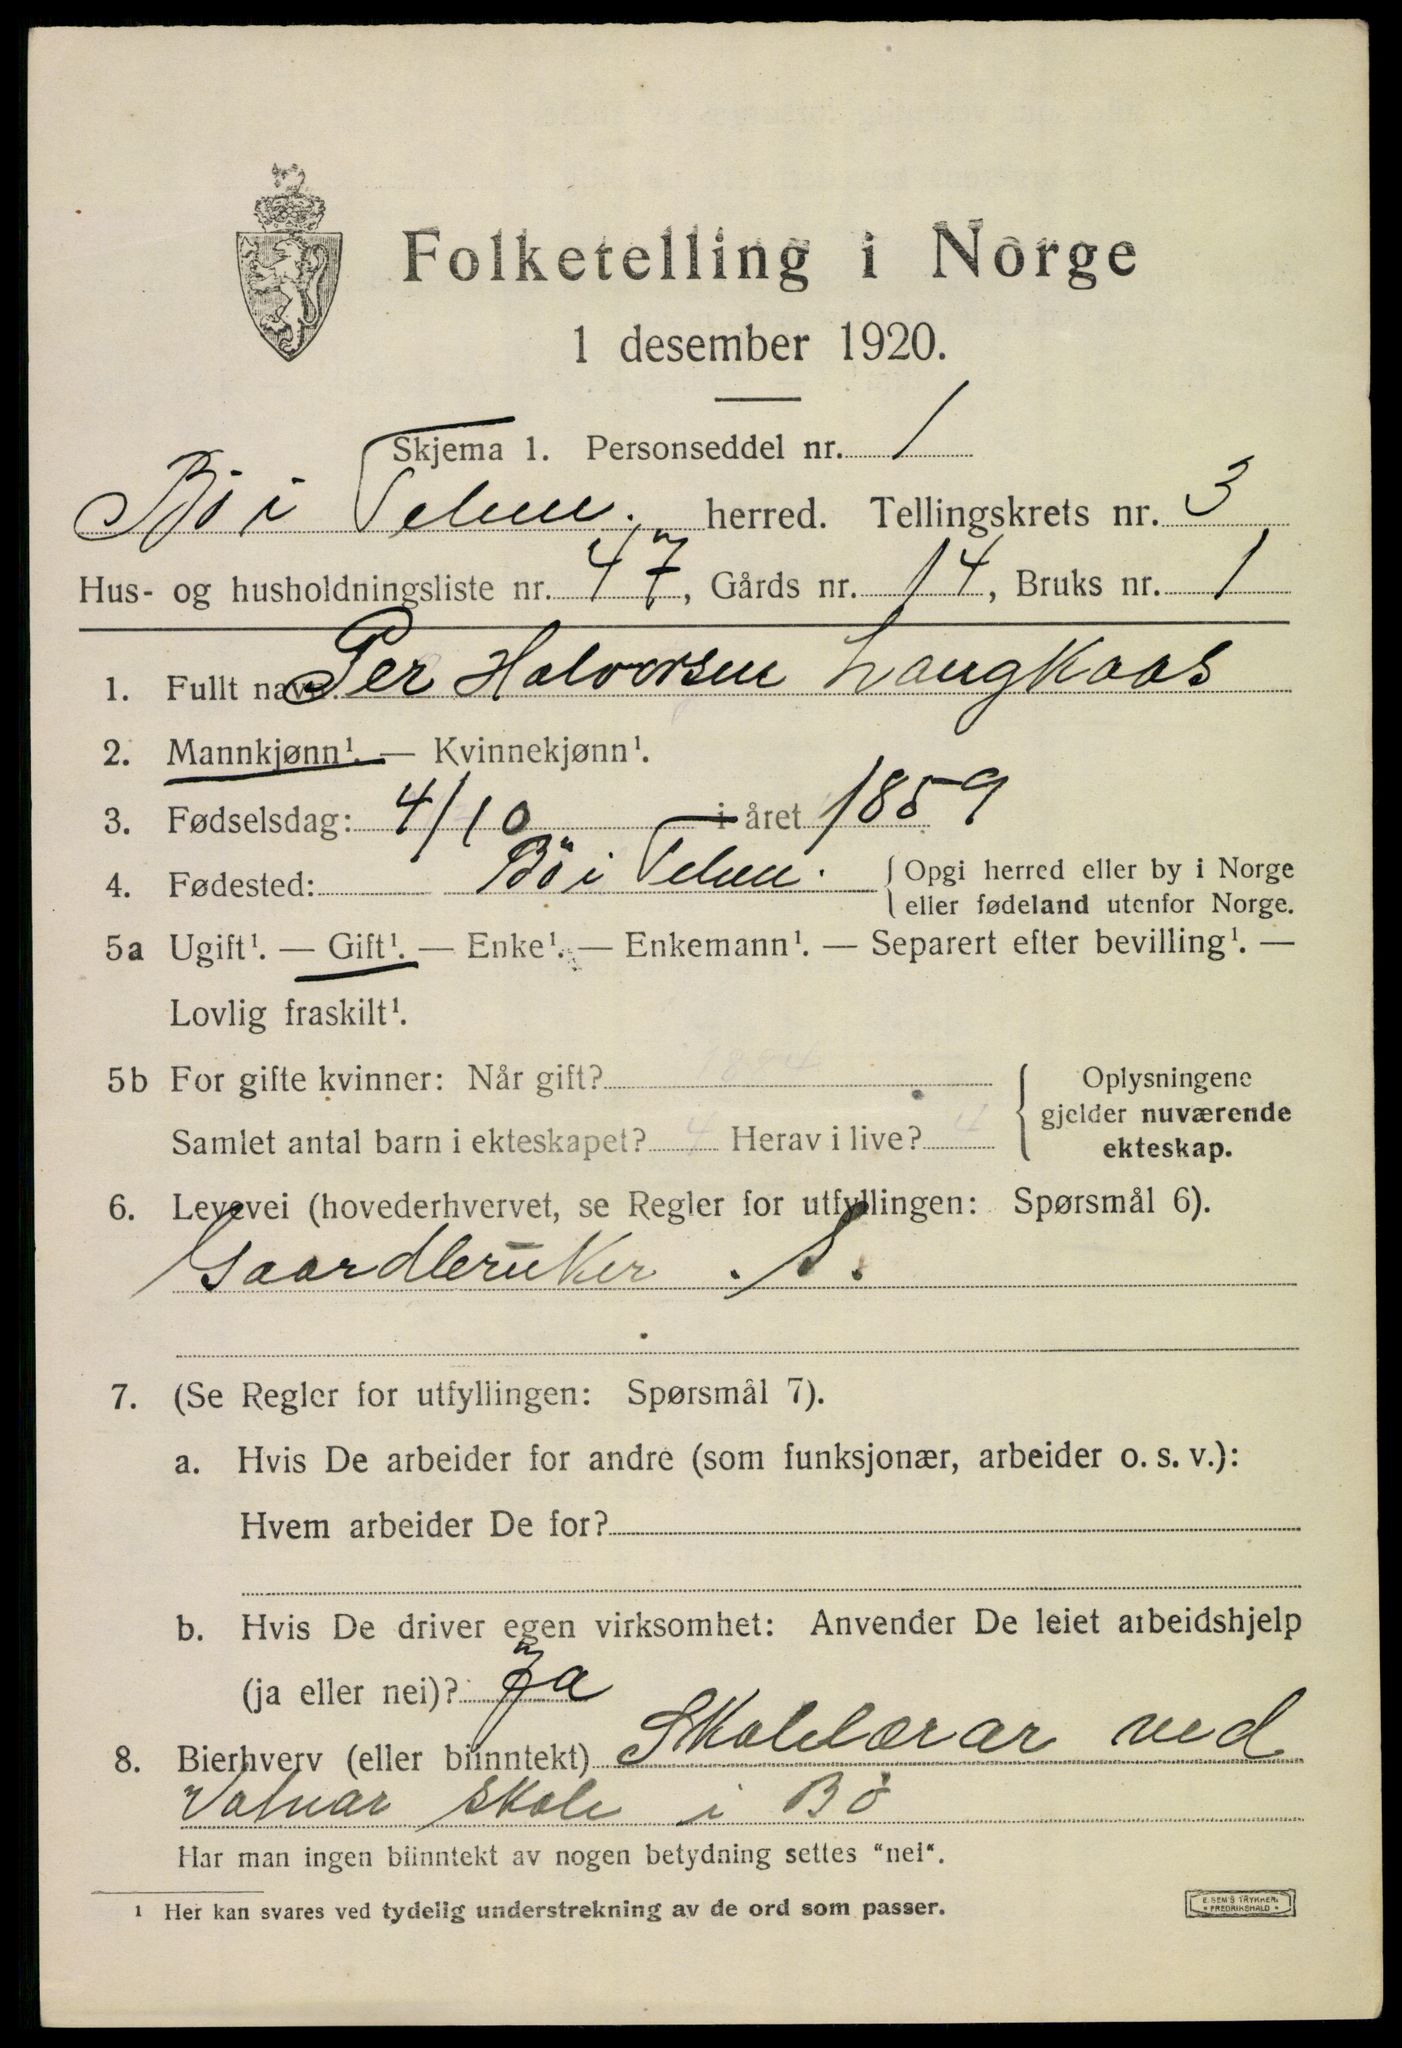 Folketelling i Norge
1 desember 1920.
Skjema 1. Personseddel nr. 1
Bö i Telem. herred. Tellingskrets nr. 3
Hus- og husholdningsliste nr. 47, Gårds nr. 14, Bruks nr. 1
1. Fullt navn Per Halvorsen Langkaas
2. Mannkjønn¹. — Kvinnekjønn¹.
3. Fødselsdag: 4/10 i året 1859
4. Fødested: Bö i Telem. { Opgi herred eller by i Norge
eller fødeland utenfor Norge.
5a Ugift¹. — Gift¹. — Enke¹. — Enkemann¹. — Separert efter bevilling¹. —
Lovlig fraskilt¹.
5b For gifte kvinner: Når gift? 1884
Samlet antal barn i ekteskapet? 4 Herav i live? 4
{ Oplysningene
gjelder nuværende
ekteskap.
6. Levevei (hovederhvervet, se Regler for utfyllingen: Spørsmål 6).
Gaardbruker. S.
7. (Se Regler for utfyllingen: Spørsmål 7).
a. Hvis De arbeider for andre (som funksjonær, arbeider o. s. v.):
Hvem arbeider De for?
b. Hvis De driver egen virksomhet: Anvender De leiet arbeidshjelp
(ja eller nei)? Ja
8. Bierhverv (eller biinntekt) Skolelærar ved
skole i Bö
Har man ingen biinntekt av nogen betydning settes "nei".
¹ Her kan svares ved tydelig understrekning av de ord som passer.
E. SEM'S TRYKKERI
• FREDRIKSHALD •